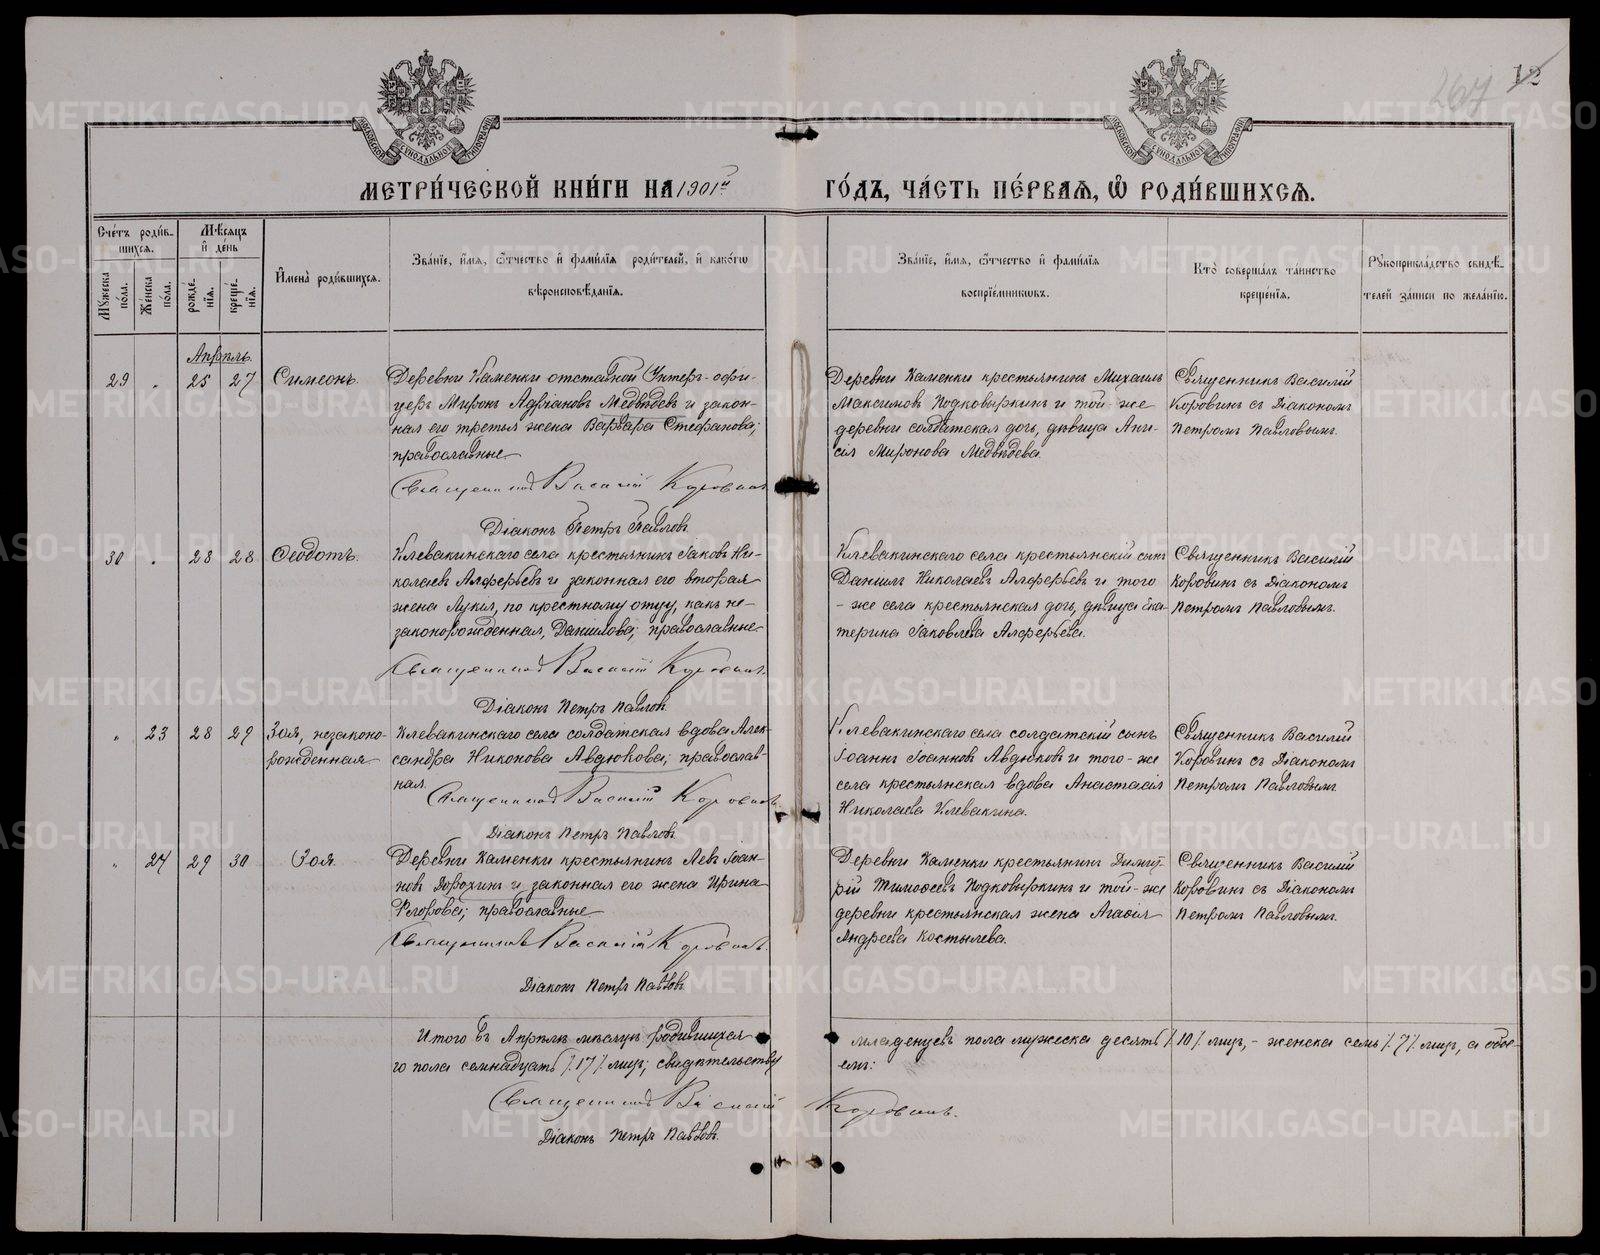 267 12
МОСКОВСКОЙ СѴНОДАЛЬНОЙ ТИПОГРАФІИ
МОСКОВСКОЙ СѴНОДАЛЬНОЙ ТИПОГРАФІИ
МЕТРИ́ЧЕСКОЙ КНИ́ГИ НА 1901й ГО́ДЪ, ЧА́СТЬ ПЕ́РВАЯ, Ѡ҆ РОДИ́ВШИХСЯ.
Сче́тъ роди́в-
шихся.
Му́жеска по́ла.
Же́нска по́ла.
Мѣ́сяцъ
и҆ де́нь
рожде́-
нїя.
креще́-
нїя.
И҆мена̀ роди́вшихся.
Зва́нїе, и҆́мя, ѻ҆́тчество и҆ фами́лїя роди́телей, и҆ како́гѡ
вѣроисповѣ́данїя.
Зва́нїе, и҆́мя, ѻ҆́тчество и҆ фами́лїя
воспрїе́мникѡвъ.
Кто̀ соверша́лъ та́инство
креще́нїя.
Рꙋкоприкла́дство свидѣ́-
телей за́писи по жела́нїю.
Апрѣль.
29 „ 25 27 Симеонъ.
Деревни Каменки отставной Унтеръ-офи-
церъ Миронъ Адріановъ Медвѣдевъ и закон-
ная его третья жена Варвара Стефанова;
православные
Священникъ Василій Коровинъ
Діаконъ Петръ Павловъ
Деревни Каменки крестьянинъ Михаилъ
Максимовъ Подковыркинъ и той-же
деревни солдатская дочь, дѣвица Ани-
сія Миронова Медвѣдева.
Священникъ Василій
Коровинъ съ Діакономъ
Петромъ Павловымъ.
30 „ 28 28 Ѳеодотъ.
Клевакинскаго села крестьянинъ Іаковъ Ни-
колаевъ Алферьевъ и законная его вторая
жена Лукія, по крестному отцу, какъ не-
законорожденная, Даніилова; православные
Священникъ Василій Коровинъ.
Діаконъ Петръ Павловъ
Клевакинскаго села крестьянскій сынъ
Даніилъ Николаевъ Алферьевъ и того
-же села крестьянская дочь, дѣвица Ека-
терина Іаковлева Алферьева.
Священникъ Василій
Коровинъ съ Діакономъ
Петромъ Павловымъ.
„ 23 28 29 Зоя, незаконо-
рожденная
Клевакинскаго села солдатская вдова Алек-
сандра Никонова Авдюкова; православ-
ная.
Священникъ Василій Коровинъ
Діаконъ Петръ Павловъ
Клевакинскаго села солдатскій сынъ
Іоаннъ Іоанновъ Авдюковъ и того-же
села крестьянская вдова Анастасія
Николаева Клевакина.
Священникъ Василій
Коровинъ съ Діакономъ
Петромъ Павловымъ
„ 24 29 30 Зоя
Деревни Каменки крестьянинъ Левъ Іоан-
новъ Дорохинъ и законная его жена Ирина
Егорова; православные
Священникъ Василій Коровинъ.
Діаконъ Петръ Павловъ
Деревни Каменки крестьянинъ Димит-
рій Тимоѳеевъ Подковыркинъ и той-же
деревни крестьянская жена Агаѳія
Андреева Костылева.
Священникъ Василій
Коровинъ съ Діакономъ
Петромъ Павловымъ.
Итого въ Апрѣлѣ мѣсяцѣ родившихся младенцевъ пола мужеска десять /.10/. мур., - женска семь /.7/. мур., а обое-
го пола семнадцать /.17/. мур.; свидѣтельству емъ:
Священникъ Василій Коровинъ.
Діаконъ Петръ Павловъ.
METRIKI.GASO-URAL.RU